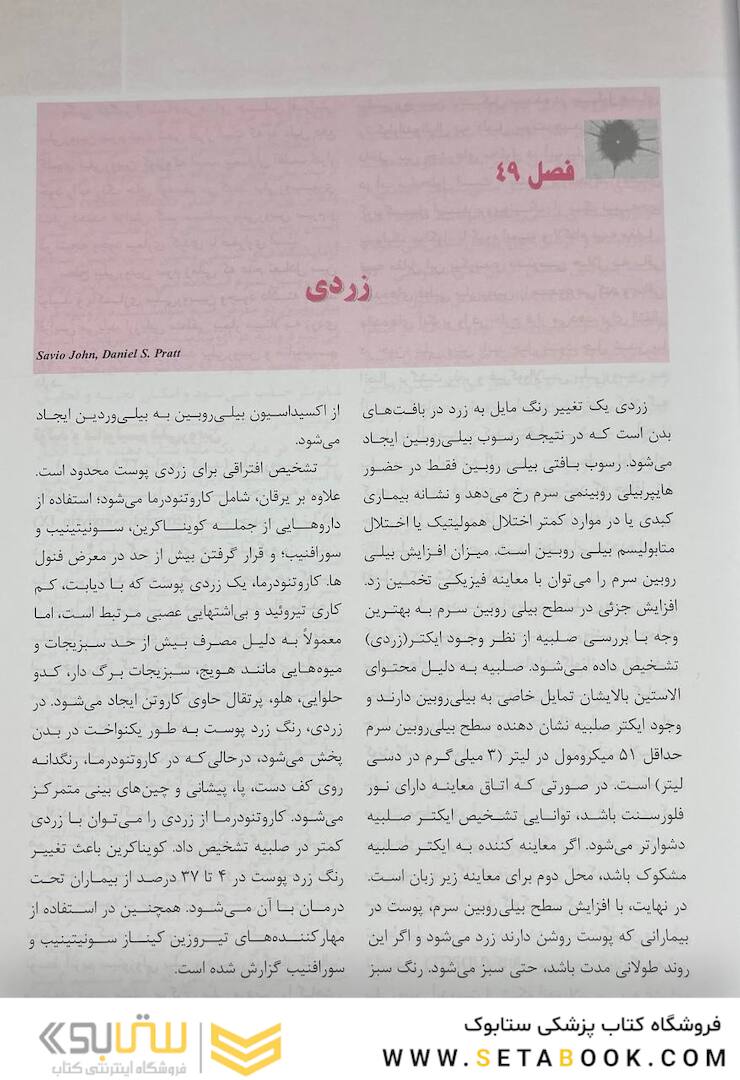 فصل ۴۹
زردی
Savio John, Daniel S. Pratt
زردی یک تغییر رنگ مایل به زرد در بافت‌های
بدن است که در نتیجه رسوب بیلی‌روبین ایجاد
می‌شود. رسوب بافتی بیلی روبین فقط در حضور
هایپربیلی روبینمی سرم رخ می‌دهد و نشانه بیماری
کبدی یا در موارد کمتر اختلال همولیتیک یا اختلال
متابولیسم بیلی روبین است. میزان افزایش بیلی
روبین سرم را می‌توان با معاینه فیزیکی تخمین زد.
افزایش جزئی در سطح بیلی روبین سرم به بهترین
وجه با بررسی صلبیه از نظر وجود ایکتر(زردی)
تشخیص داده می‌شود. صلبیه به دلیل محتوای
الاستین بالایشان تمایل خاصی به بیلی‌روبین دارند و
وجود ایکتر صلبیه نشان دهنده سطح بیلی‌روبین سرم
حداقل ۵۱ میکرومول در لیتر (۳ میلی‌گرم در دسی
لیتر) است. در صورتی که اتاق معاینه دارای نور
فلورسنت باشد، توانایی تشخیص ایکتر صلبیه
دشوارتر می‌شود. اگر معاینه کننده به ایکتر صلبیه
مشکوک باشد، محل دوم برای معاینه زیر زبان است.
در نهایت، با افزایش سطح بیلی‌روبین سرم، پوست در
بیمارانی که پوست روشن دارند زرد می‌شود و اگر این
روند طولانی مدت باشد، حتی سبز می‌شود. رنگ سبز
از اکسیداسیون بیلی‌روبین به بیلی‌وردین ایجاد
می‌شود.
تشخیص افتراقی برای زردی پوست محدود است.
علاوه بر یرقان، شامل کاروتنودرما می‌شود؛ استفاده از
داروهایی از جمله کویناکرین، سونیتینیب و
سورافنیب؛ و قرار گرفتن بیش از حد در معرض فنول
ها. کاروتنودرما، یک زردی پوست که با دیابت، کم
کاری تیروئید و بی‌اشتهایی عصبی مرتبط است، اما
معمولاً به دلیل مصرف بیش از حد سبزیجات و
میوه‌هایی مانند هویج، سبزیجات برگ دار، کدو
حلوایی، هلو، پرتقال حاوی کاروتن ایجاد می‌شود. در
زردی، رنگ زرد پوست به طور یکنواخت در بدن
پخش می‌شود، درحالی‌که در کاروتنودرما، رنگدانه
روی کف دست، پا، پیشانی و چین‌های بینی متمرکز
می‌شود. کاروتنودرما از زردی را می‌توان با زردی
کمتر در صلبیه تشخیص داد. کویناکرین باعث تغییر
رنگ زرد پوست در ۴ تا ۳۷ درصد از بیماران تحت
درمان با آن می‌شود. همچنین در استفاده از
مهارکننده‌های تیروزین کیناز سونیتینیب و
سورافنیب گزارش شده است.
فروشگاه کتاب پزشکی ستابوک
WWW.SETABOOK.COM
ستابوک
فروشگاه اینترنتی کتاب